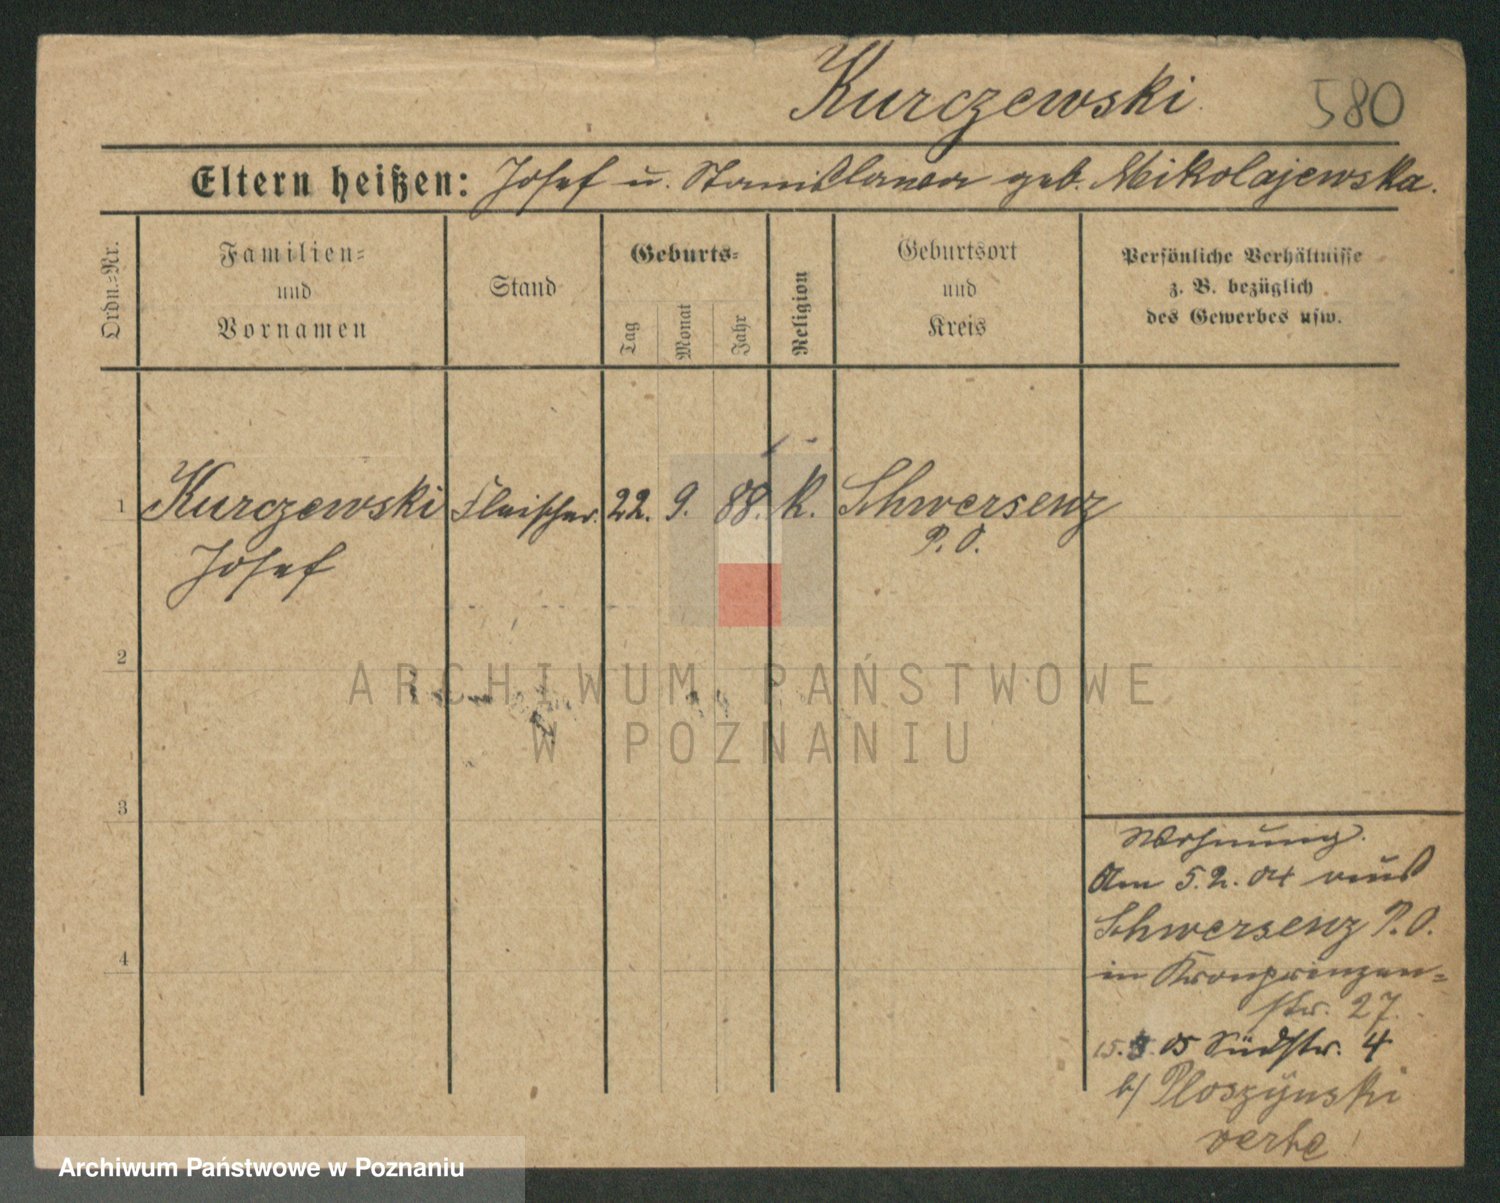 Kurczewski 580
Eltern heißen: Josef u. Stanislawa geb. Mikolajewska.
Ordn.-Nr.
Familien-
und
Vornamen
Stand
Geburts-
Tag
Monat
Jahr
Religion
Geburtsort
und
Kreis
Persönliche Verhältnisse
z. B. bezüglich
des Gewerbes usw.
1 Kurczewski Fleischer. 22. 9. 88. K. Schwersenz
Josef P. O.
2
3
4
Wohnung.
Am 5.2.04 aus
Schwersenz P.O.
in Kronprinzen-
str. 27.
15. 05 Südstr. 4
b/ Ploszynski
ARCHIWUM PAŃSTWOWE
W POZNANIU
Archiwum Państwowe w Poznaniu